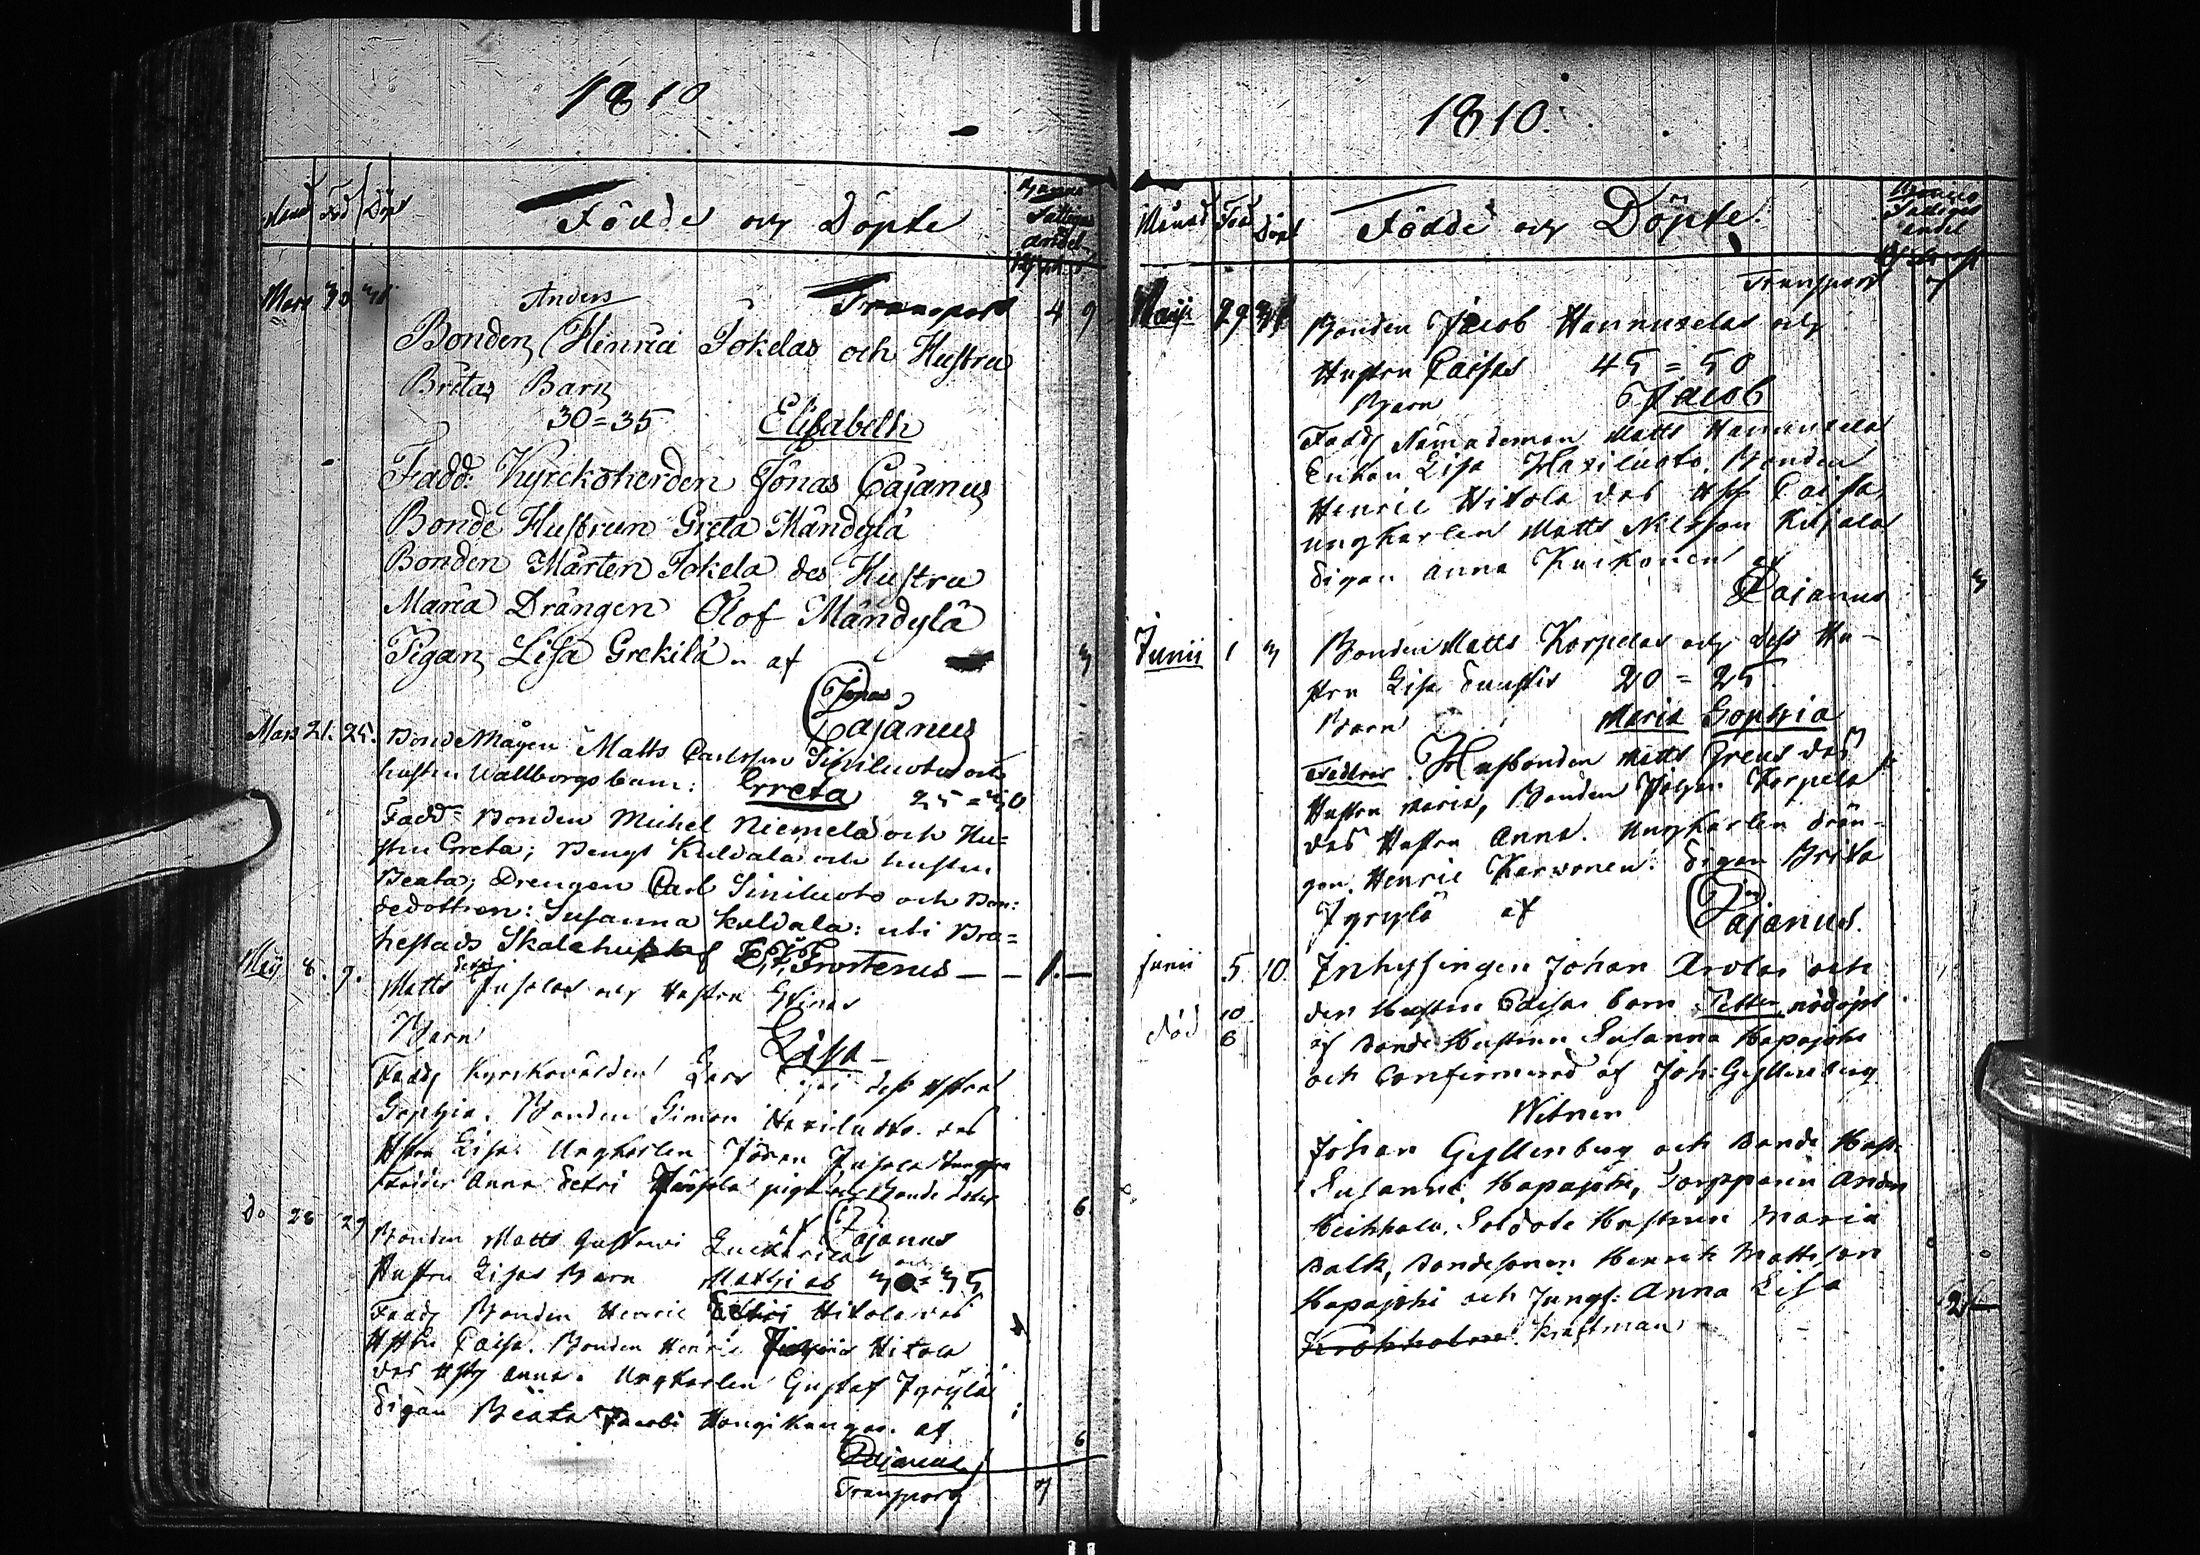 1810
Månad Född Döpt
Födde och Döpte
Barnens
Fattiges
andel
Transport 4 9
Mars 30 31
Anders
Bonden Henric Jokelas och Hustru
Britas Barn
30=35 Elisabeth
Fadd: Kyrckoherden Jonas Cajanus
Bonde Hustrun Greta Mändylä
Bonden Mårten Jokela des Hustru
Maria Drängen Olof Mändylä
Pigan Lisa Grekilä. af 3
Jonas
Cajanus
Mars 21. 25. Bonde Mågen Matts Carlsson Siniluoto och
hustru Wallborgs barn: Greta 25=30
Fadd: Bonden Michel Niemelä och Hu=
stru Greta; Bengt Kuldala och hustru
Beata; Drengen Carl Siniluoto och Bon=
dedottren: Susanna Kuldala: uti Bra=
hestads Skolehus af E. J. Frosterus — — 1. —
Maij 8. 9. Matts Jusolas och Hustru Stinas
Barn
Lisa
Fadd Kyrckovärden Lars dess Hstru
Sophia. Bonden Simon des
Hstru Lisa. Ungkarlen Jöran Jusola
Anna Petri pigan Bonde doter
af Cajanus 6.
Do 28 29 Bonden Matts Gustavi
Hustru Lisas Barn Mathias 30=35
Fadd Bonden Henric Petri Hitola des
Hstru Caisa. Bonden Henric Hitola
des Hstr Anna. Ungkarlen Gustaf Jyrylä
Pigan Beata Jacobi Hongikangas. af
Cajanus 6
Transport 7
1810.
Månad Född Döpt
Födde och Döpte.
Barnens
Fattiges
andel
Transport 7
Maji 29 31 Bonden Jacob Hannuselas och
Hustru Caisas 45=50
Barn Jacob
Fadd Nämndeman Matts Hannusela
Enkan Lisa Haxiluoto. Bonden
Henric Hitola des Hst Caisa,
ungkarlen Matts Nilsson Kiljala
Pigan Anna Kuckonen af
Cajanus 3
Junii 1 3 Bonden Matts Korpelas och dess Hu-
stru Lisa 20=25
Barn Maria Sophia
Faddrar. Husbonden Matts Greus des
Hustru Maria, Bonden Johan Korpela
des Hustru Anna. Ungkarlen drän-
gen. Henric Karvonen. Pigan Brita
Jyrylä af Cajanus.
Junii 5. 10. Inhysingen Johan Arolas och
des Hustru Caisas barn Petter, nöddöpt
död 10
6
af Bonde Hustrun Susanna Hapajoki
och Confirmerad af Joh: Gyllenberg
Witnen
Johan Gyllenberg och Bonde Hust:
Susanna Hapajoki, Torpparen Anders
Heikkala. Soldate Hustrun Maria
Balk, Bondesonen Henrik Mattsson
Hapajoki och Jungf: Anna Lisa
Kraftman 2 —